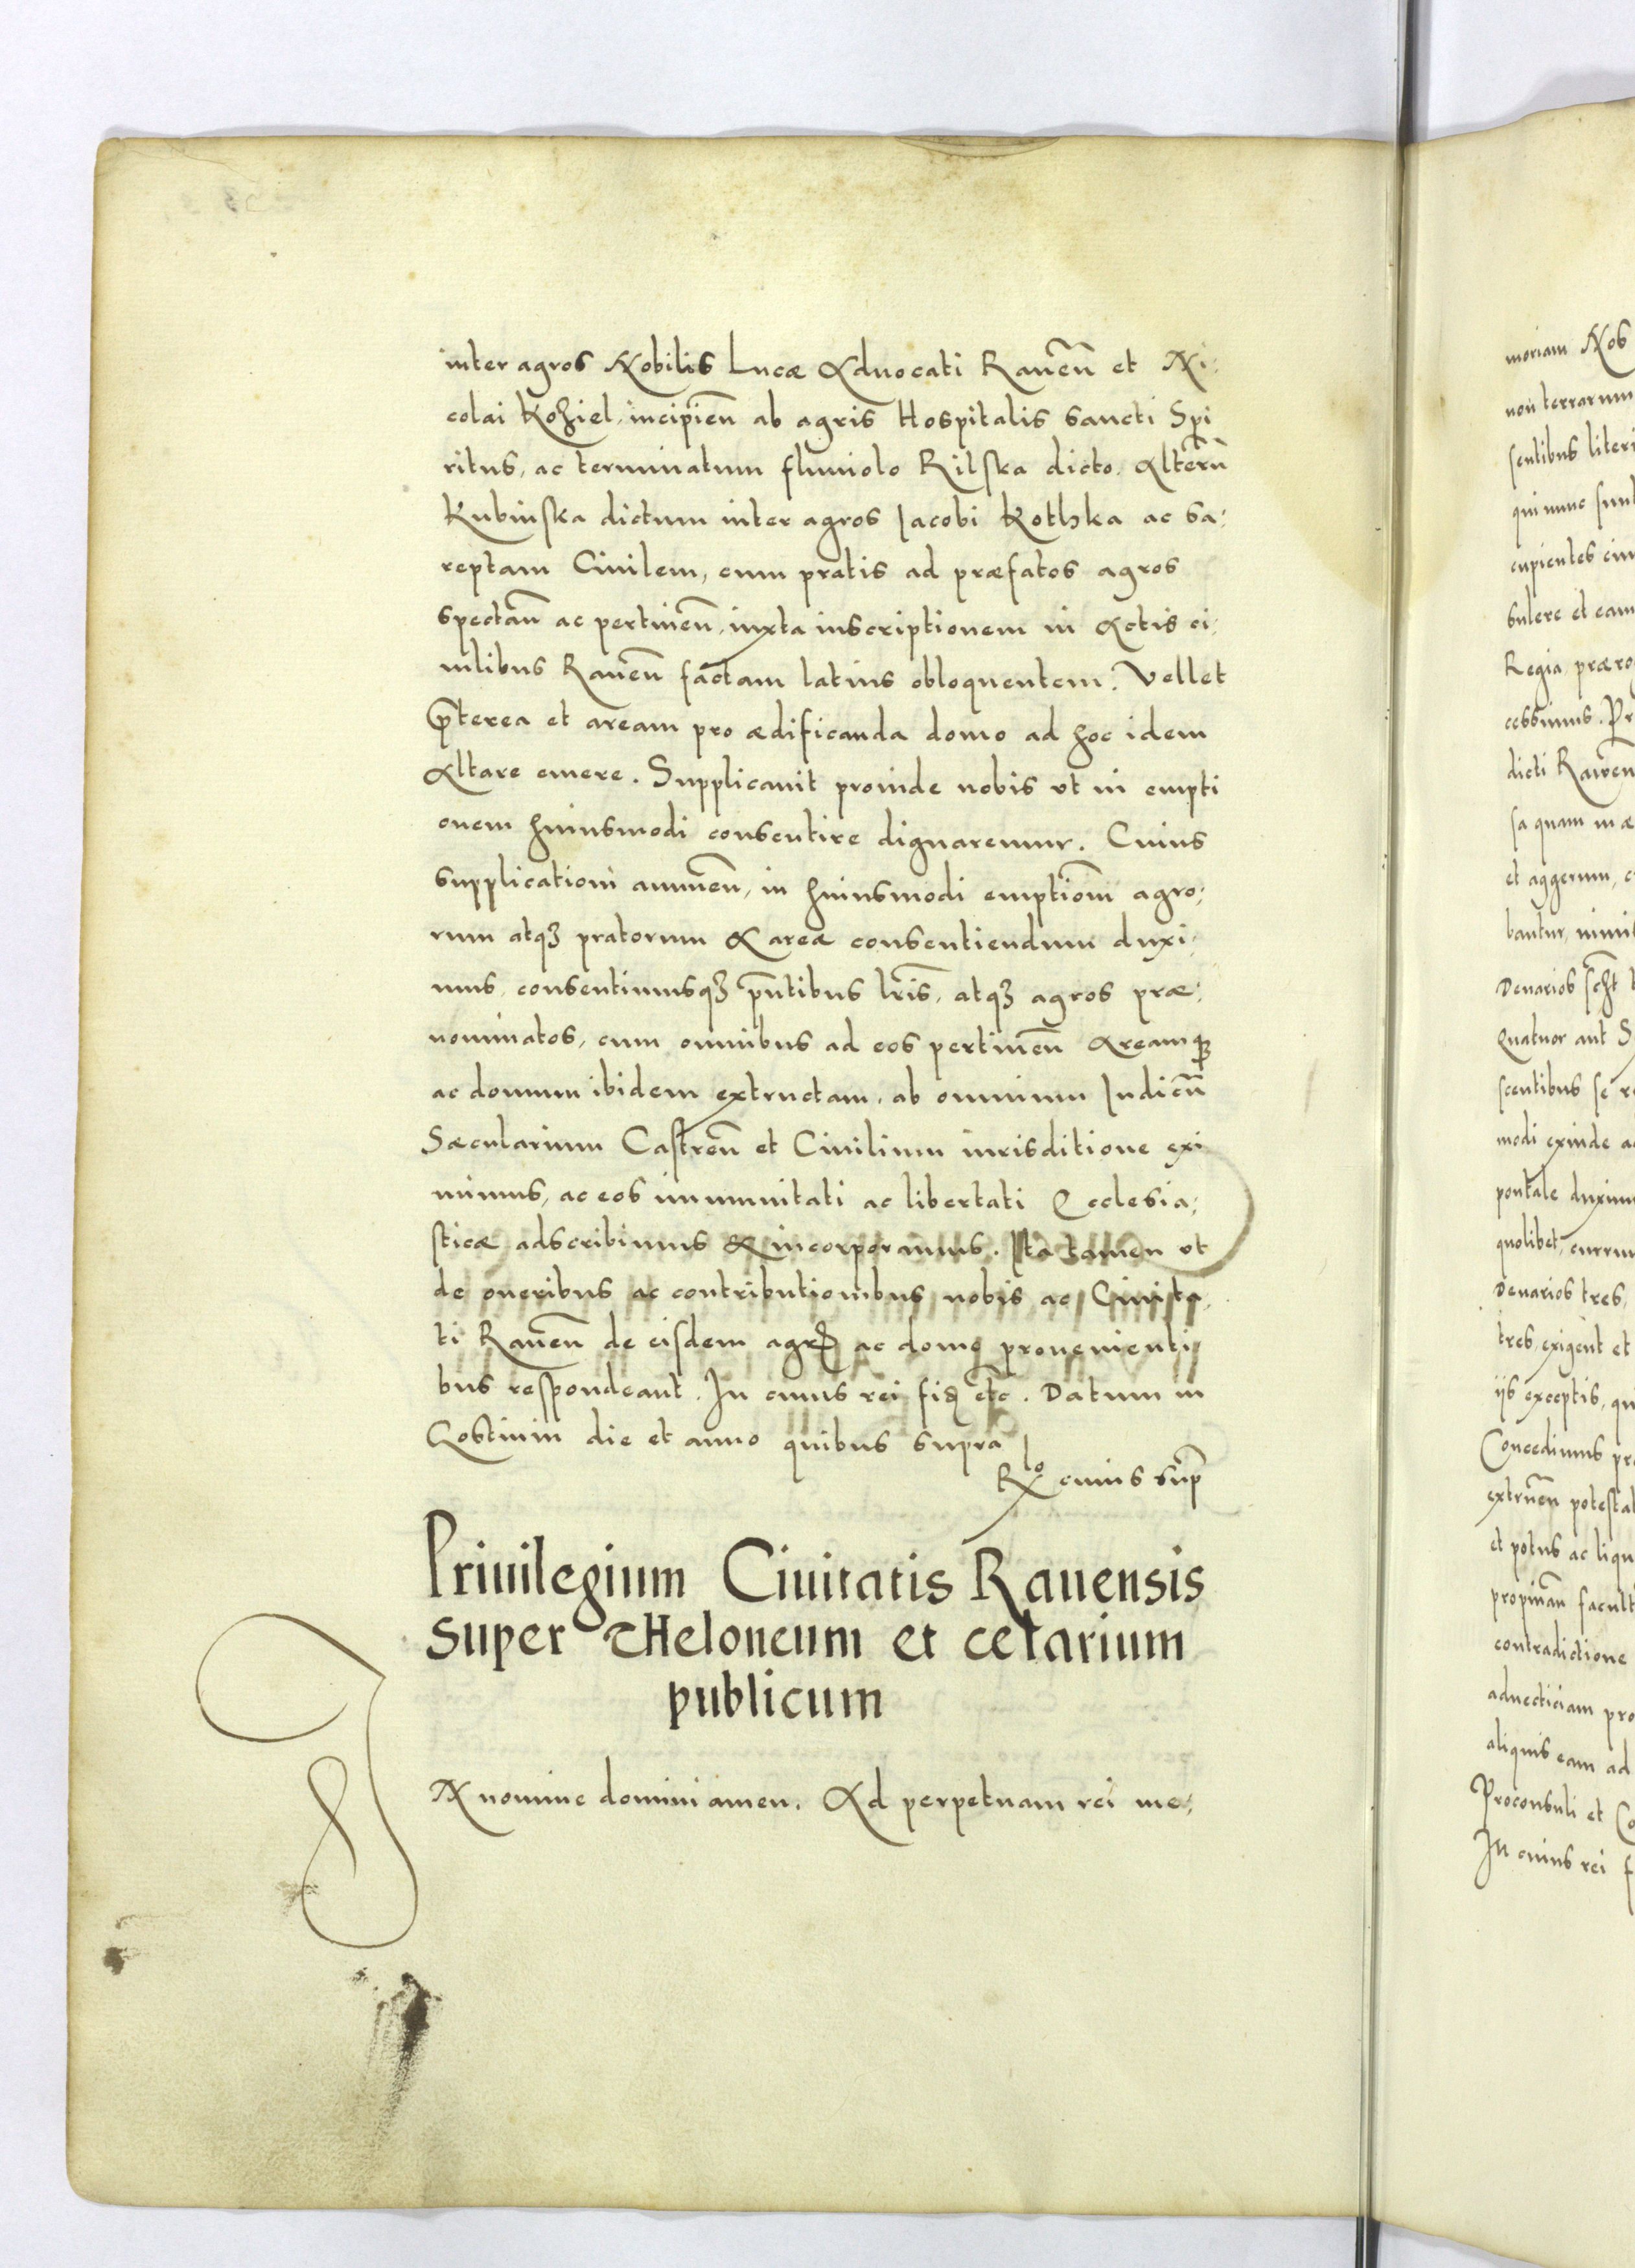 inter agros Nobilis Lucæ Aduocati Raueñ et Ni:
colai Koziel, incipieñ ab agris Hospitalis Sancti Spi
ritus, ac terminatum fluuiolo Rilska dicto. Alterũ
Kubinska dictum inter agros Jacobi Kothka ac Sa:
reptam Ciuilem, cum pratis ad præfatos agros
spectañ ac pertineñ, iuxta inscriptionem in Actis ci:
uilibus Raueñ factam latius obloquentem. Vellet
p̃terea et aream pro ædificanda domo ad hoc idem
Altare emere. Supplicauit proinde nobis vt in empti
onem huiusmodi consentire dignaremur. Cuius
supplicationi annueñ, in huiusmodi emptioñ agro:
rum atqꝫ pratorum & areæ consentiendum duxi:
mus, consentimusqꝫ p̃ntibus lr̃is, atqꝫ agros præ:
nominatos, cum omnibus ad eos pertineñ Areamqꝫ
ac domum ibidem extructam, ab omnium Judicũ
Sæcularium Castreñ et Ciuilium iurisditione exi
mimus, ac eos immunitati ac libertati Ecclesia:
sticæ adscribimus & incorporamus. Ita tamen vt
de oneribus ac contributionibus nobis ac Ciuita
ti Raueñ de eisdem agrꝭ ac domo prouenienti
bus respondeant. In cuius rei fiđ etc̃. Datum in
Gostinin die et anno quibus supra
Rẽo cuius sup̃
Priuilegium Ciuitatis Rauensis
super Theloneum et cetarium
publicum
IN nomine domini amen. Ad perpetuam rei me:
moriam Nob
non terrarum
sentibus liter
qui nunc sunt
cupientes
sulere et eam
Regia præro
cessimus. Pr
dicti Raweñ
sa quam
et aggerum, c
bantur,
Denarios
Quatuor aut S
scentibus se r
modi exinde a
pontale duxim
quolibet, curru
Denarios tres,
tres, exigent et
ijs exceptis, qu
Concedimus pr
extrueñ potestat
et potus ac liqu
propinañ facult
contradictione
aduecticiam pro
aliquis eam ad
Proconsuli et Co
In cuius rei f